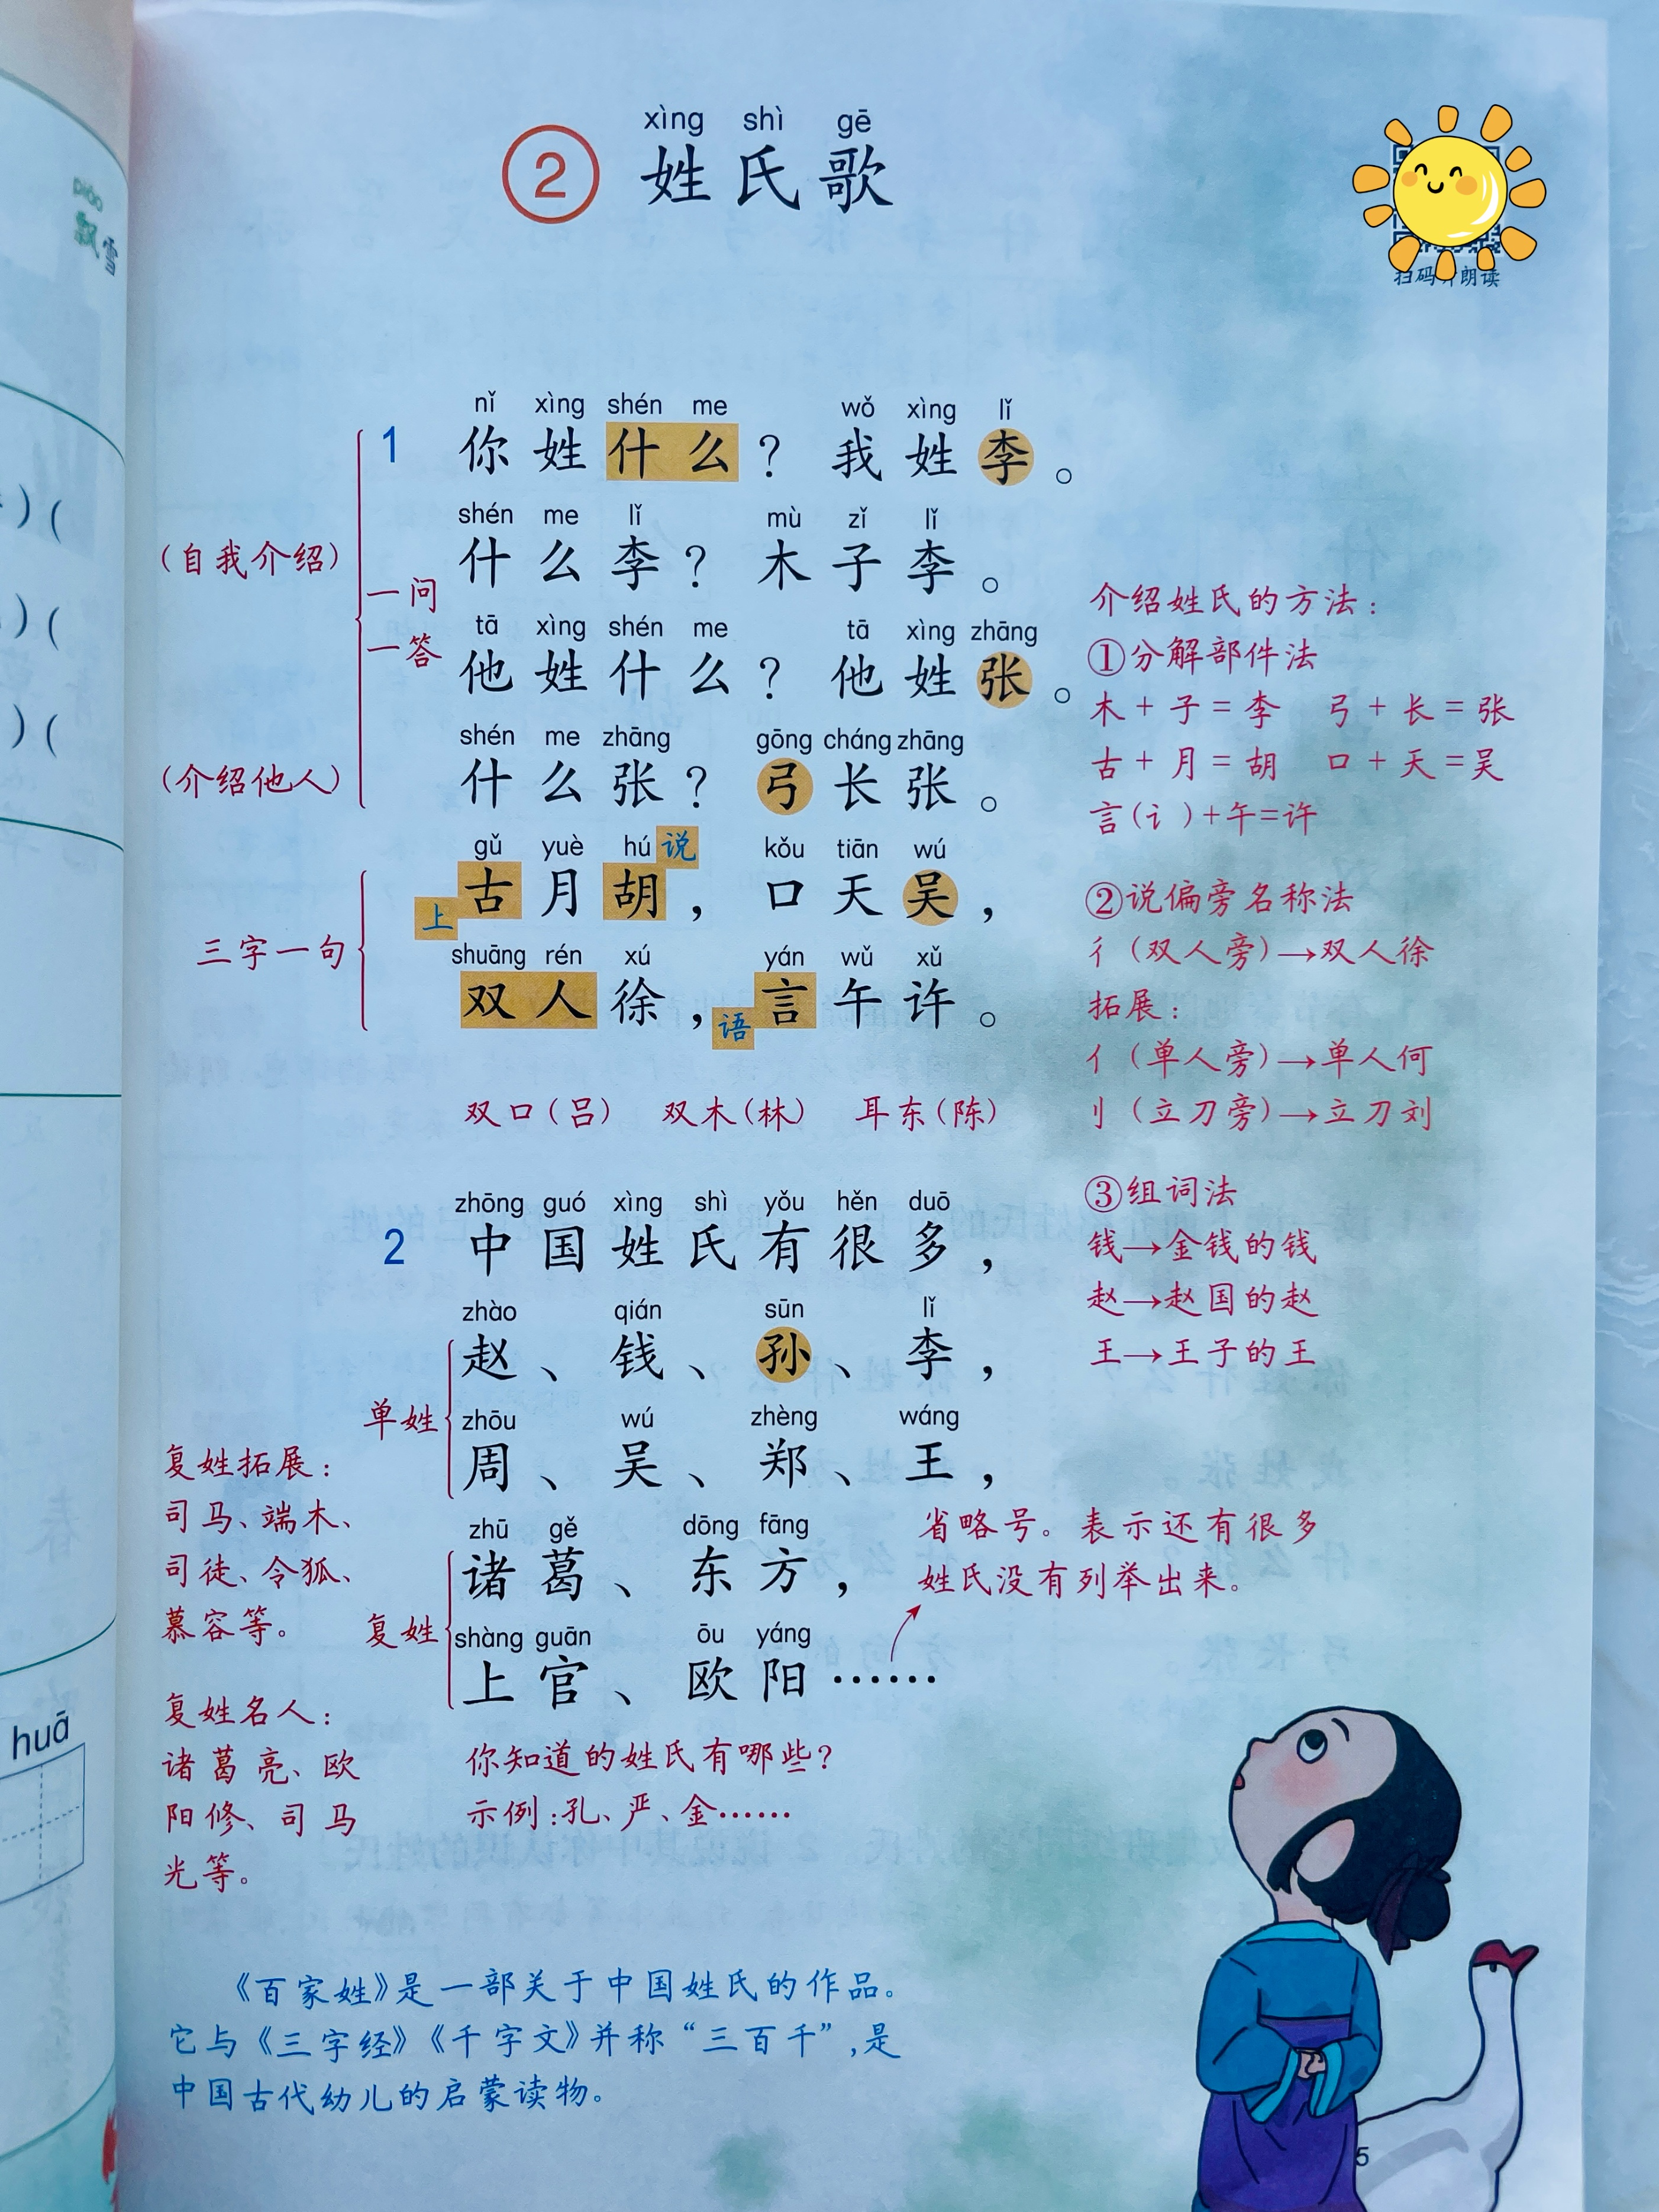 xìng shì gē
② 姓氏歌
扫码 朗读
nǐ xìng shén me wǒ xìng lǐ
1 你姓什么？我姓李。
shén me lǐ mù zǐ lǐ
什么李？木子李。
tā xìng shén me tā xìng zhāng
他姓什么？他姓张。
shén me zhāng gōng cháng zhāng
什么张？弓长张。
(自我介绍)
一问
一答
(介绍他人)
gǔ yuè hú 说 kǒu tiān wú
上 古月胡，口天吴，
shuāng rén xú yán wǔ xǔ
双人徐，语 言午许。
三字一句
双口(吕) 双木(林) 耳东(陈)
介绍姓氏的方法：
①分解部件法
木+子=李 弓+长=张
古+月=胡 口+天=吴
言(讠)+午=许
②说偏旁名称法
彳(双人旁)→双人徐
拓展：
亻(单人旁)→单人何
刂(立刀旁)→立刀刘
③组词法
钱→金钱的钱
赵→赵国的赵
王→王子的王
zhōng guó xìng shì yǒu hěn duō
2 中国姓氏有很多，
zhào qián sūn lǐ
赵、钱、孙、李，
zhōu wú zhèng wáng
周、吴、郑、王，
单姓
zhū gě dōng fāng
诸葛、东方，
shàng guān ōu yáng
上官、欧阳……
复姓
省略号。表示还有很多
姓氏没有列举出来。
复姓拓展：
司马、端木、
司徒、令狐、
慕容等。
复姓名人：
诸葛亮、欧
阳修、司马
光等。
你知道的姓氏有哪些？
示例：孔、严、金……
《百家姓》是一部关于中国姓氏的作品。
它与《三字经》《千字文》并称“三百千”，是
中国古代幼儿的启蒙读物。
5
piāo
飘雪
春
huā